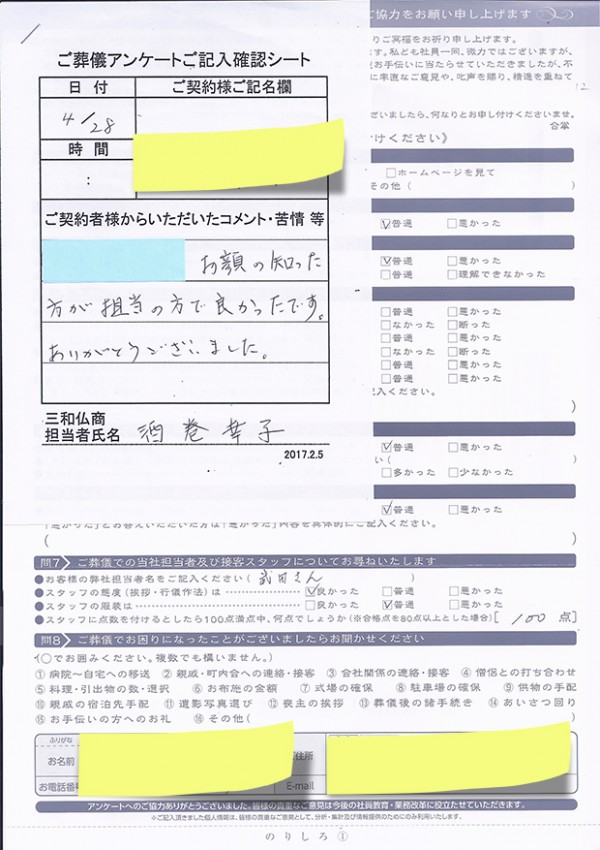 ご協力をお願い申し上げます
りご冥福をお祈り申し上げます。
す。私ども社員一同、微力ではございますが、
お手伝いに当たらせていただきましたが、不
に率直なご意見や、叱声を賜り、精進を重ねて
ございましたら、何なりとお申し付けくださいませ。
合掌
ご葬儀アンケートご記入確認シート
日付 ご契約様ご記名欄
4/28
時間
:
ご契約者様からいただいたコメント・苦情 等
お顔の知った
方が担当の方で良かったです。
ありがとうございました。
三和仏商
担当者氏名 酒巻幸子
2017.2.5
付けください》
□ホームページを見て
その他( )
☑普通 □悪かった
☑普通 □悪かった
□普通 □理解できなかった
□普通 □悪かった
□なかった □断った
□普通 □悪かった
□なかった □断った
□普通 □悪かった
□普通 □悪かった
記入ください。
)
☑普通 □悪かった
い( )
□多かった □少なかった
☑普通 □悪かった
「悪かった」とお答えいただいた方は「悪かった」内容を具体的にご記入ください。
( )
問7 ご葬儀での当社担当者及び接客スタッフについてお尋ねいたします
●お客様の弊社担当者名をご記入ください( 武田さん )
●スタッフの態度(挨拶・行儀作法)は ☑良かった □普通 □悪かった
●スタッフの服装は □良かった ☑普通 □悪かった
●スタッフに点数を付けるとしたら100点満点中、何点でしょうか(※合格点を80点以上とした場合)[ 100 点]
問8 ご葬儀でお困りになったことがございましたらお聞かせください
(○でお囲みください。複数でも構いません。)
①病院〜自宅への移送 ②親戚・町内会への連絡・接客 ③会社関係の連絡・接客 ④僧侶との打ち合わせ
⑤料理・引出物の数・選択 ⑥お布施の金額 ⑦式場の確保 ⑧駐車場の確保 ⑨供物の手配
⑩親戚の宿泊先手配 ⑪遺影写真選び ⑫喪主の挨拶 ⑬葬儀後の諸手続き ⑭あいさつ回り
⑮お手伝いの方へのお礼 ⑯その他( )
ふりがな
お名前 住所
お電話番号 E-mail
アンケートへのご協力ありがとうございました。皆様の貴重なご意見は今後の社員教育・業務改革に役立たせていただきます。
※ご記入頂きました個人情報は、皆様の貴重なご意見として、分析・集計及び情報提供のためにのみ利用いたします。
のりしろ①